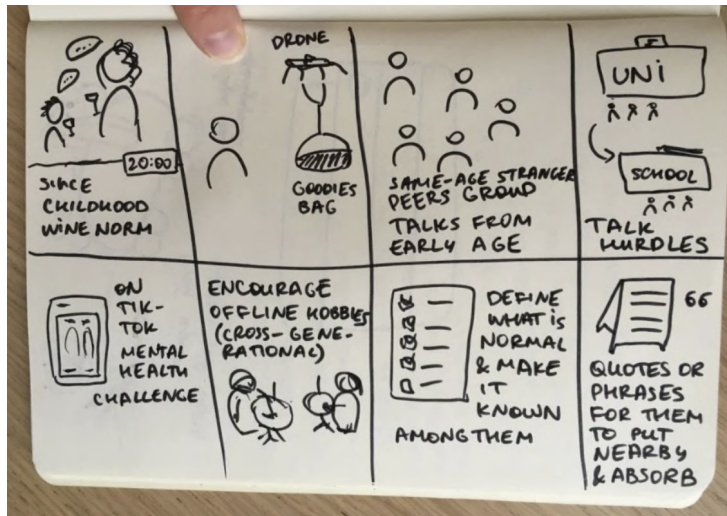 20:00
SINCE
CHILDHOOD
WINE NORM
DRONE
GOODIES
BAG
SAME-AGE STRANGER
PEERS GROUP
TALKS FROM
EARLY AGE
UNI
SCHOOL
TALK
HURDLES
ON
TIK-
TOK
MENTAL
HEALTH
CHALLENGE
ENCOURAGE
OFFLINE HOBBIES
(CROSS-GENE-
RATIONAL)
DEFINE
WHAT IS
NORMAL
& MAKE
IT
KNOWN
AMONG THEM
66
QUOTES OR
PHRASES
FOR THEM
TO PUT
NEARBY
& ABSORB